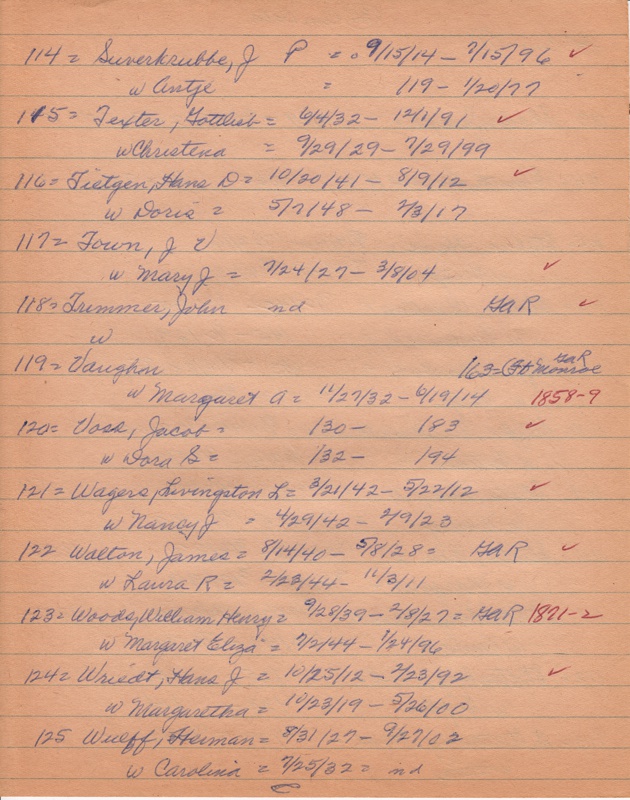 114 = Suverkrubbe, J P = 9/15/14 - 7/15/96 ✓
w Antje = /19 - 1/20/77
115 = Texter, Gottlieb = 6/4/32 - 12/1/91 ✓
w Christena = 9/29/29 - 7/29/99
116 = Tietgen, Hans D = 10/20/41 - 8/9/12 ✓
w Doris = 5/7/48 - 2/3/17
117 = Town, J V
w Mary J = 7/24/27 - 3/8/04 ✓
118 = Trimmer, John nd GaR ✓
w
119 = Vaughn 163 = (Ft Monroe GaR
w Margaret A = 11/27/32 - 6/19/14 1858-9
120 = Voss, Jacob = /30 - /83 ✓
w Dora S = /32 - /94
121 = Wagers, Livingston L = 3/21/42 - 5/22/12 ✓
w Nancy J = 4/29/42 - 2/9/23
122 Walton, James = 8/14/40 - 5/8/28 = GaR ✓
w Laura R = 2/23/44 - 11/3/11
123 = Woods, William Henry = 9/28/39 - 2/8/27 = GaR 1871-2
w Margaret Eliza = 7/2/44 - 1/24/96
124 = Wriedt, Hans J = 10/25/12 - 2/23/92 ✓
w Margaretha = 10/23/19 - 5/26/00
125 Wulff, Herman = 8/31/27 - 9/27/02
w Carolina = 7/25/32 = nd